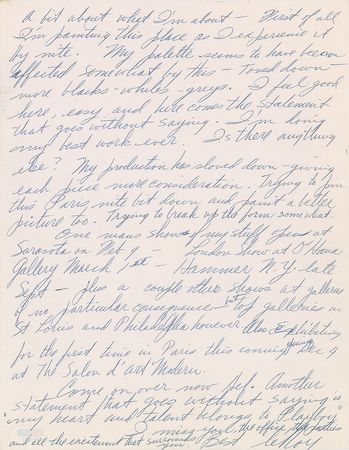 A bit about what I'm about – First of all
I'm painting this place as I experience it
by nite. My palette seems to have become
affected somewhat by this – Toned down –
more blacks – whites – greys. I feel good
here, easy and here comes the statement
that goes without saying. I'm doing
my best work ever. Is there anything
else? My production has slowed down – giving
each piece more consideration. Trying to pin
this Paris nite bit down and paint a better
picture too. Trying to break up the form somewhat.
One mans show of my stuff opens at
Sarasota on Feb 1 London show at O'Hana
Gallery March 1st – Hammer N.Y. late
Sept – plus a couple other shows at galleries
of no particular consequence – top galleries in
St Louis and Philadelphia however. Also Exhibiting
for the first time in Paris this coming Dec 9
at The Salon d'art Modern.
Come on over now Hef. Another
statement that goes without saying is
"my heart and talent belongs to Playboy"
I miss you, the office, the parties
and all the excitement that surrounds you. Best LeRoy